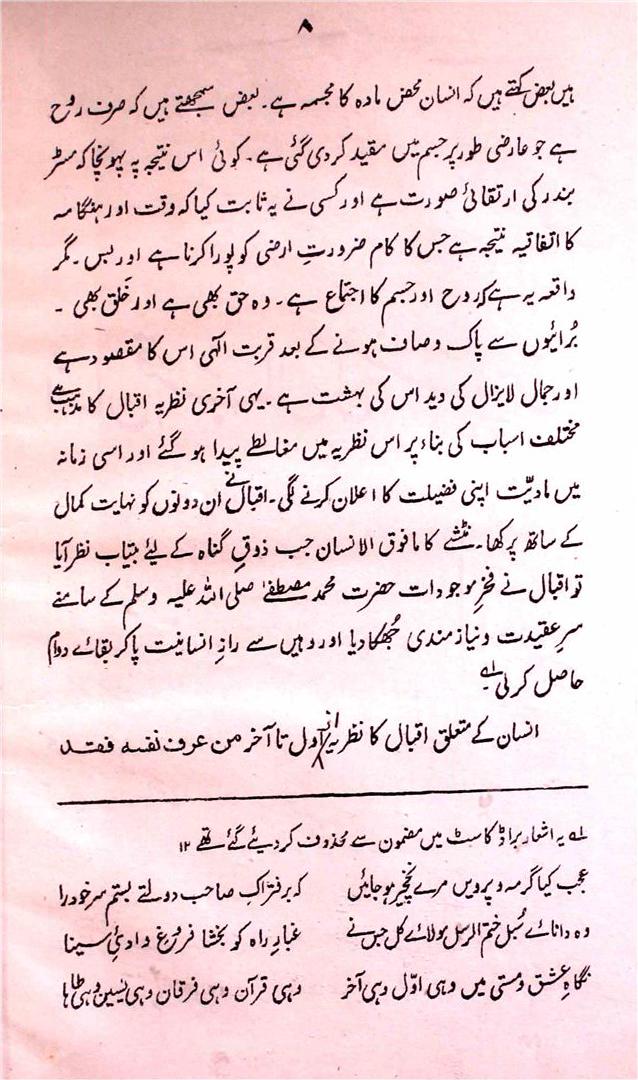 ۸
ہیں بعض کہتے ہیں کہ انسان محض مادہ کا مجسمہ ہے۔ بعض سمجھتے ہیں کہ صرف روح
ہے جو عارضی طور پر جسم میں مقید کر دی گئی ہے۔ کوئی اس نتیجہ پہ پہونچا کہ مسٹر
بندر کی ارتقائی صورت ہے اور کسی نے یہ ثابت کیا کہ وقت اور ہنگامہ
کا اتفاقیہ نتیجہ ہے جس کا کام ضرورتِ ارضی کو پورا کرنا ہے اور بس۔ مگر
واقعہ یہ ہے کہ روح اور جسم کا اجتماع ہے۔ وہ حق بھی ہے اور خَلق بھی ۔
بُرائیوں سے پاک و صاف ہونے کے بعد قربت الٰہی اس کا مقصود ہے
اور جمال لایزال کی دید اس کی بہشت ہے۔ یہی آخری نظریہ اقبال کا مذہب ہے
مختلف اسباب کی بناء پر اس نظریہ میں مغالطے پیدا ہو گئے اور اسی زمانہ
میں مادیّت اپنی فضیلت کا اعلان کرنے لگی۔ اقبال نے ان دونوں کو نہایت کمال
کے ساتھ پرکھا۔ نٹشے کا مافوق الانسان جب ذوقِ گناہ کے لیئے بیتاب نظر آیا
تو اقبال نے فخرِ موجودات حضرت محمد مصطفےٰ صلی اللہ علیہ وسلم کے سامنے
سرِ عقیدت و نیازمندی جُھکا دیا اور وہیں سے رازِ انسانیت پا کر بقائے دوام
حاصل کر لی لہ
انسان کے متعلق اقبال کا نظریہ از اول تا آخر من عرف نفسہ فقد
لہ یہ اشعار براڈ کاسٹ میں مضمون سے محذوف کر دیئے گئے تھے ۱۲
عجب کیا گر مہ و پرویں مرے نخچیر ہو جائیں کہ بر فتراکِ صاحب دولتے بستم سر خود را
وہ دانائے سُبل ختم الرسل مولائے کل جس نے غبارِ راہ کو بخشا فروغ وادئ سینا
نگاہِ عشق و مستی میں وہی اوّل وہی آخر وہی قرآن وہی فرقان وہی یٰسین وہی طٰہٰا